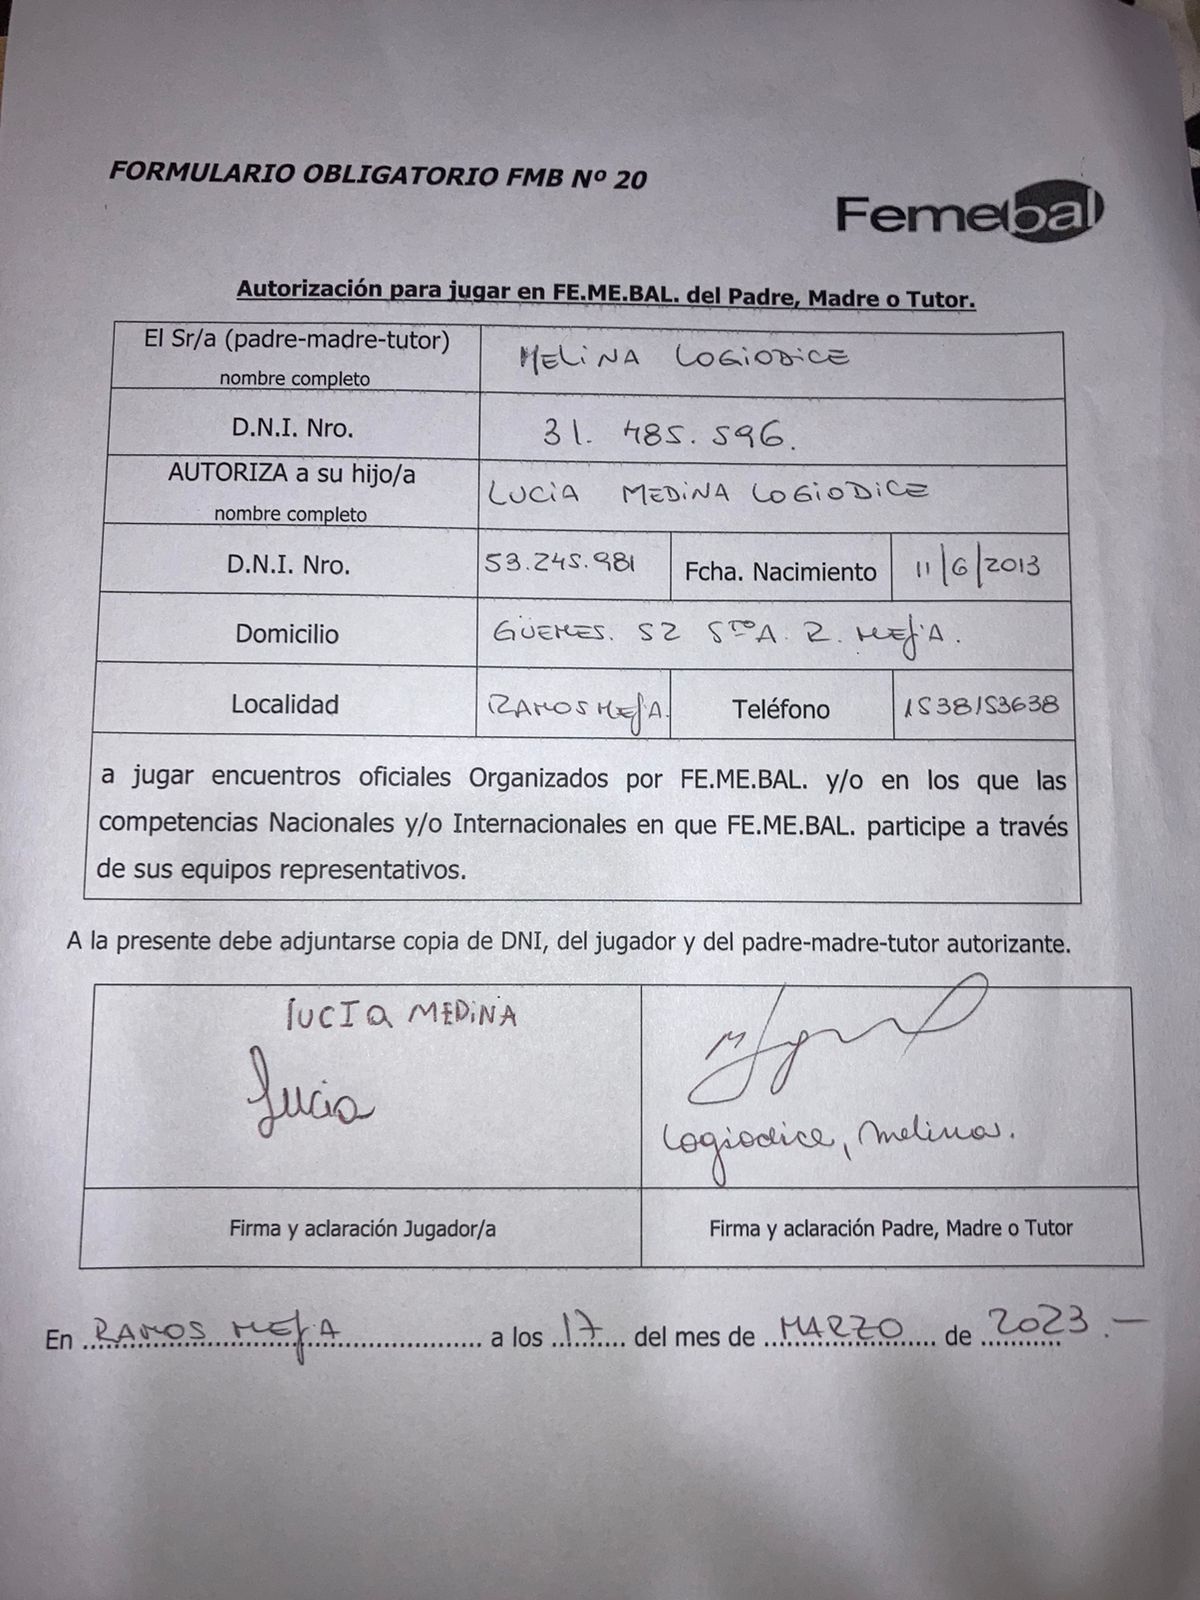 FORMULARIO OBLIGATORIO FMB Nº 20
Femebal
Autorización para jugar en FE.ME.BAL. del Padre, Madre o Tutor.
El Sr/a (padre-madre-tutor) MELINA LOGIODICE
nombre completo
D.N.I. Nro. 31.485.596.
AUTORIZA a su hijo/a LUCIA MEDINA LOGIODICE
nombre completo
D.N.I. Nro. 53.245.981 Fcha. Nacimiento 11/6/2013
Domicilio GÜEMES. 52 5TO A. R. MEJIA.
Localidad RAMOS MEJIA. Teléfono 1538153638
a jugar encuentros oficiales Organizados por FE.ME.BAL. y/o en los que las
competencias Nacionales y/o Internacionales en que FE.ME.BAL. participe a través
de sus equipos representativos.
A la presente debe adjuntarse copia de DNI, del jugador y del padre-madre-tutor autorizante.
lUCIa MEDINA
Lucia
Logiodice, Melina.
Firma y aclaración Jugador/a Firma y aclaración Padre, Madre o Tutor
En RAMOS MEJIA a los 17 del mes de MARZO de 2023.-